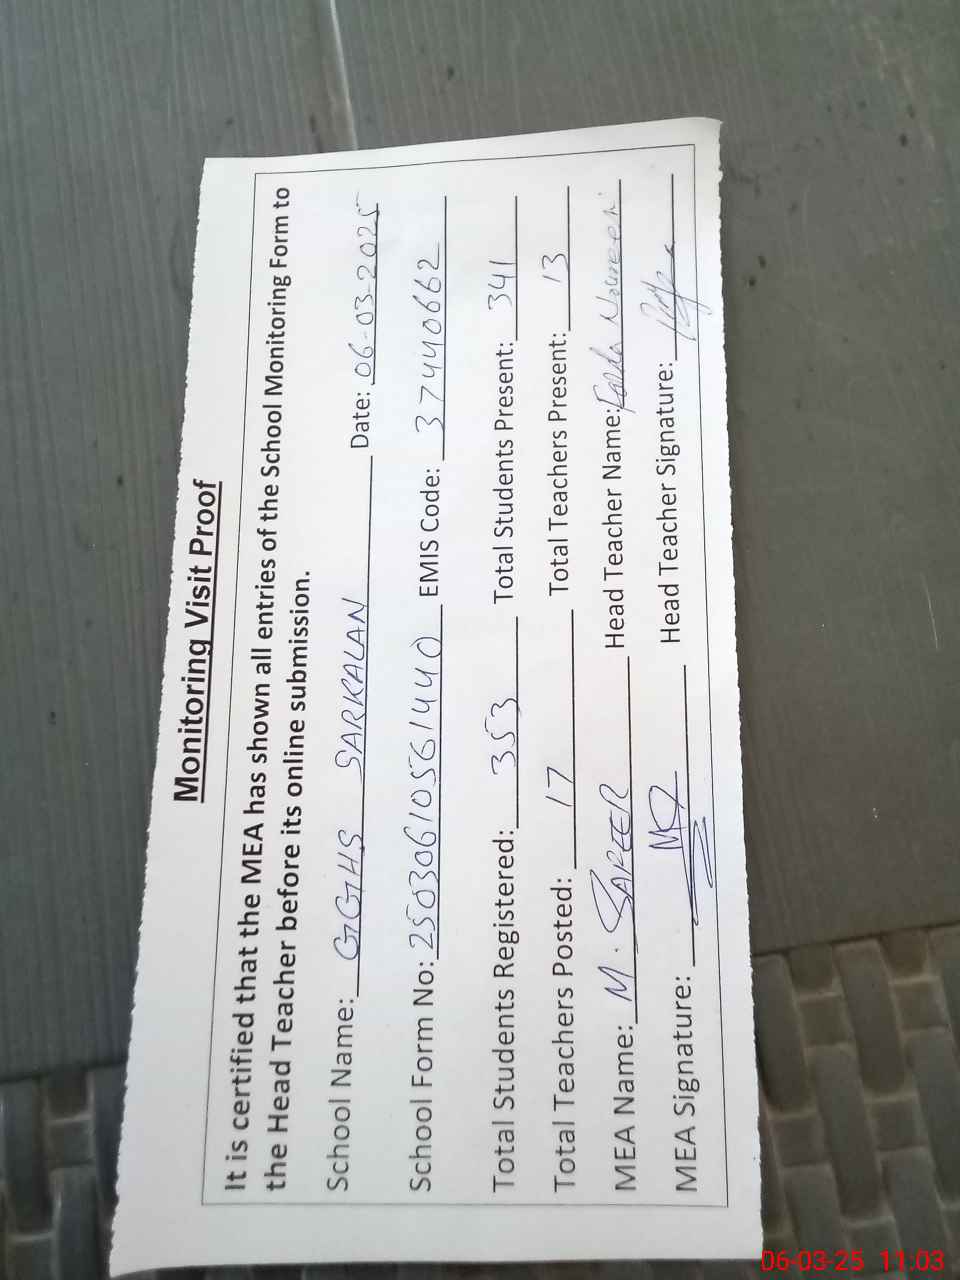 Monitoring Visit Proof
It is certified that the MEA has shown all entries of the School Monitoring Form to
the Head Teacher before its online submission.
School Name: GGHS SARKALAN Date: 06-03-2025
School Form No: 25030610561440 EMIS Code: 37440662
Total Students Registered: 353 Total Students Present: 341
Total Teachers Posted: 17 Total Teachers Present: 13
MEA Name: M. Head Teacher Name: Noureen
MEA Signature: Head Teacher Signature:
06-03-25 11:03